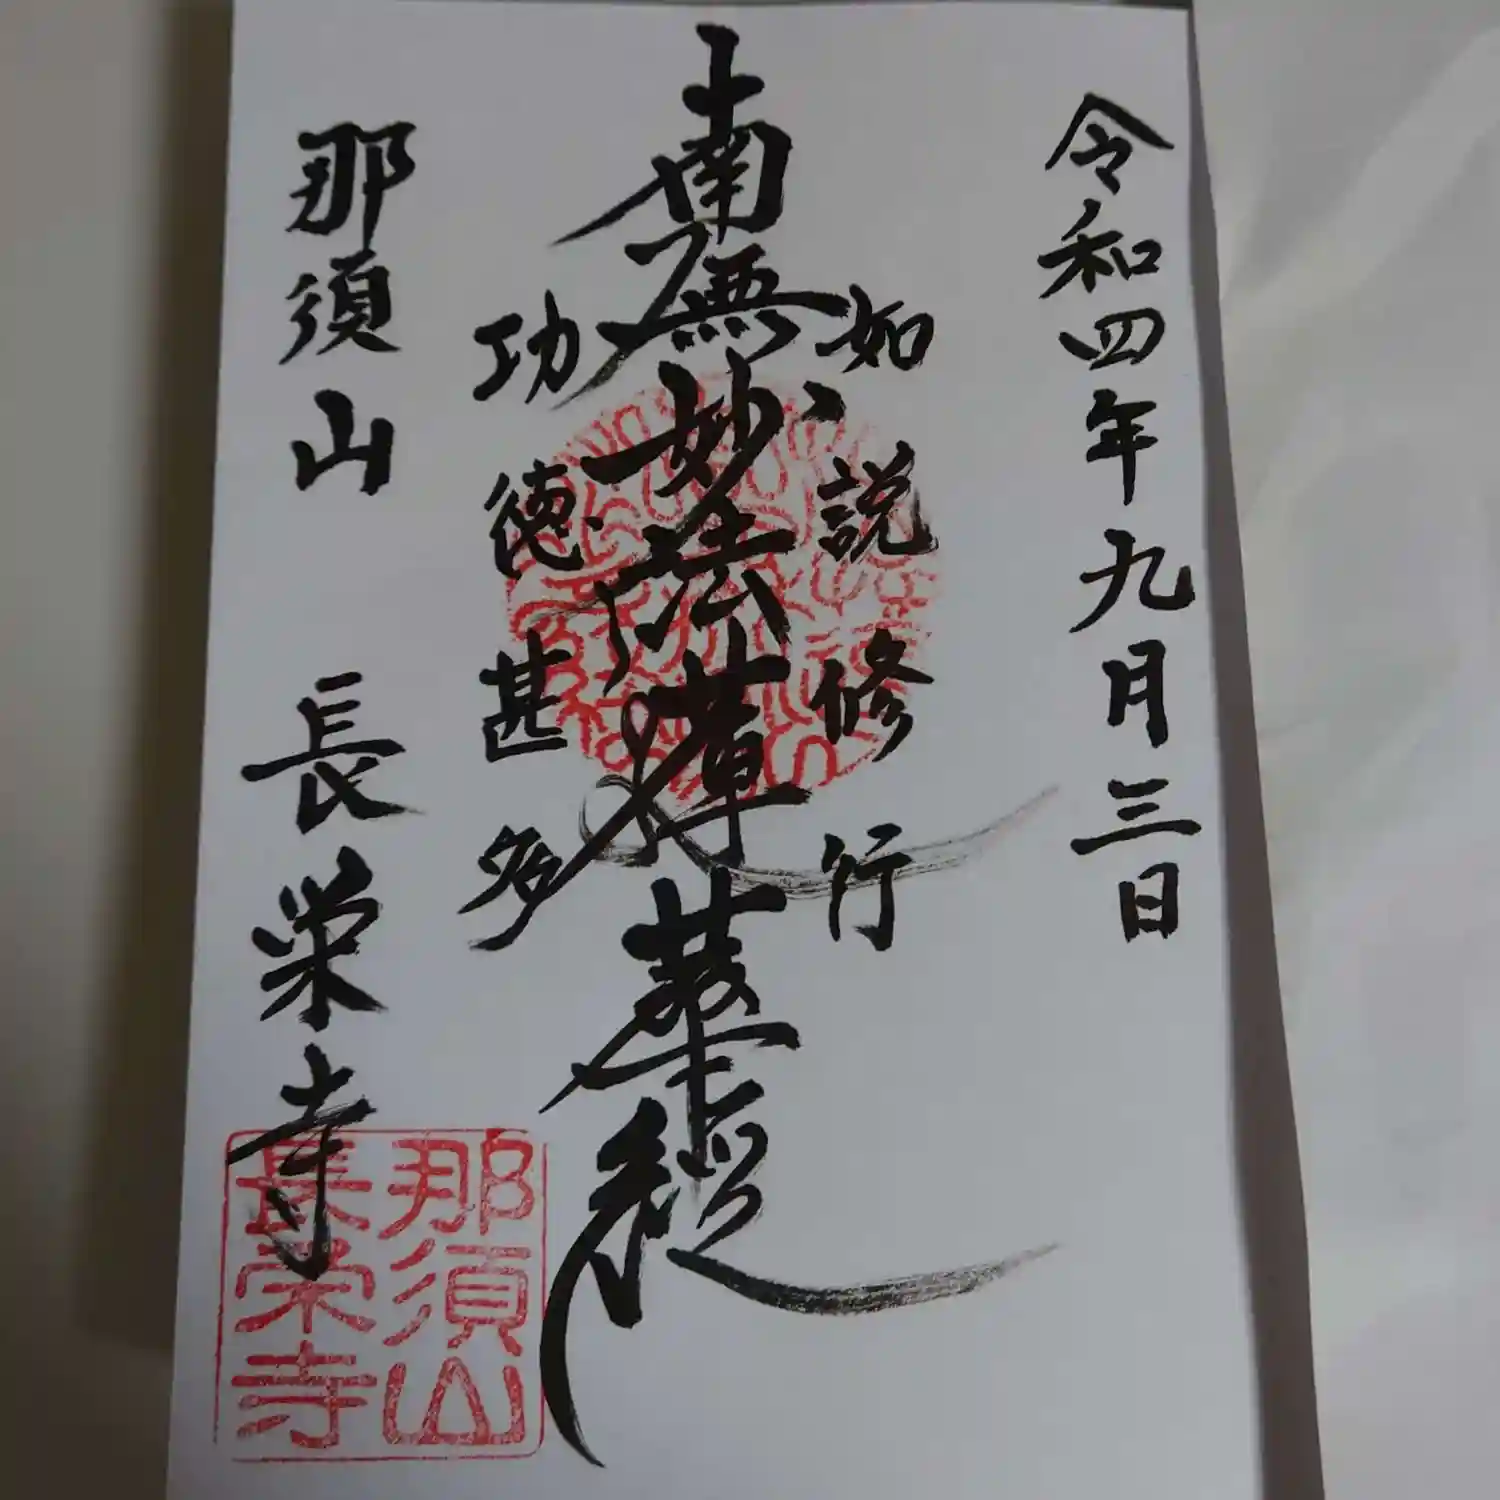 令和四年九月三日
如説修行
南無妙法蓮華経
功徳甚多
那須山 長栄寺
那須山
長栄寺